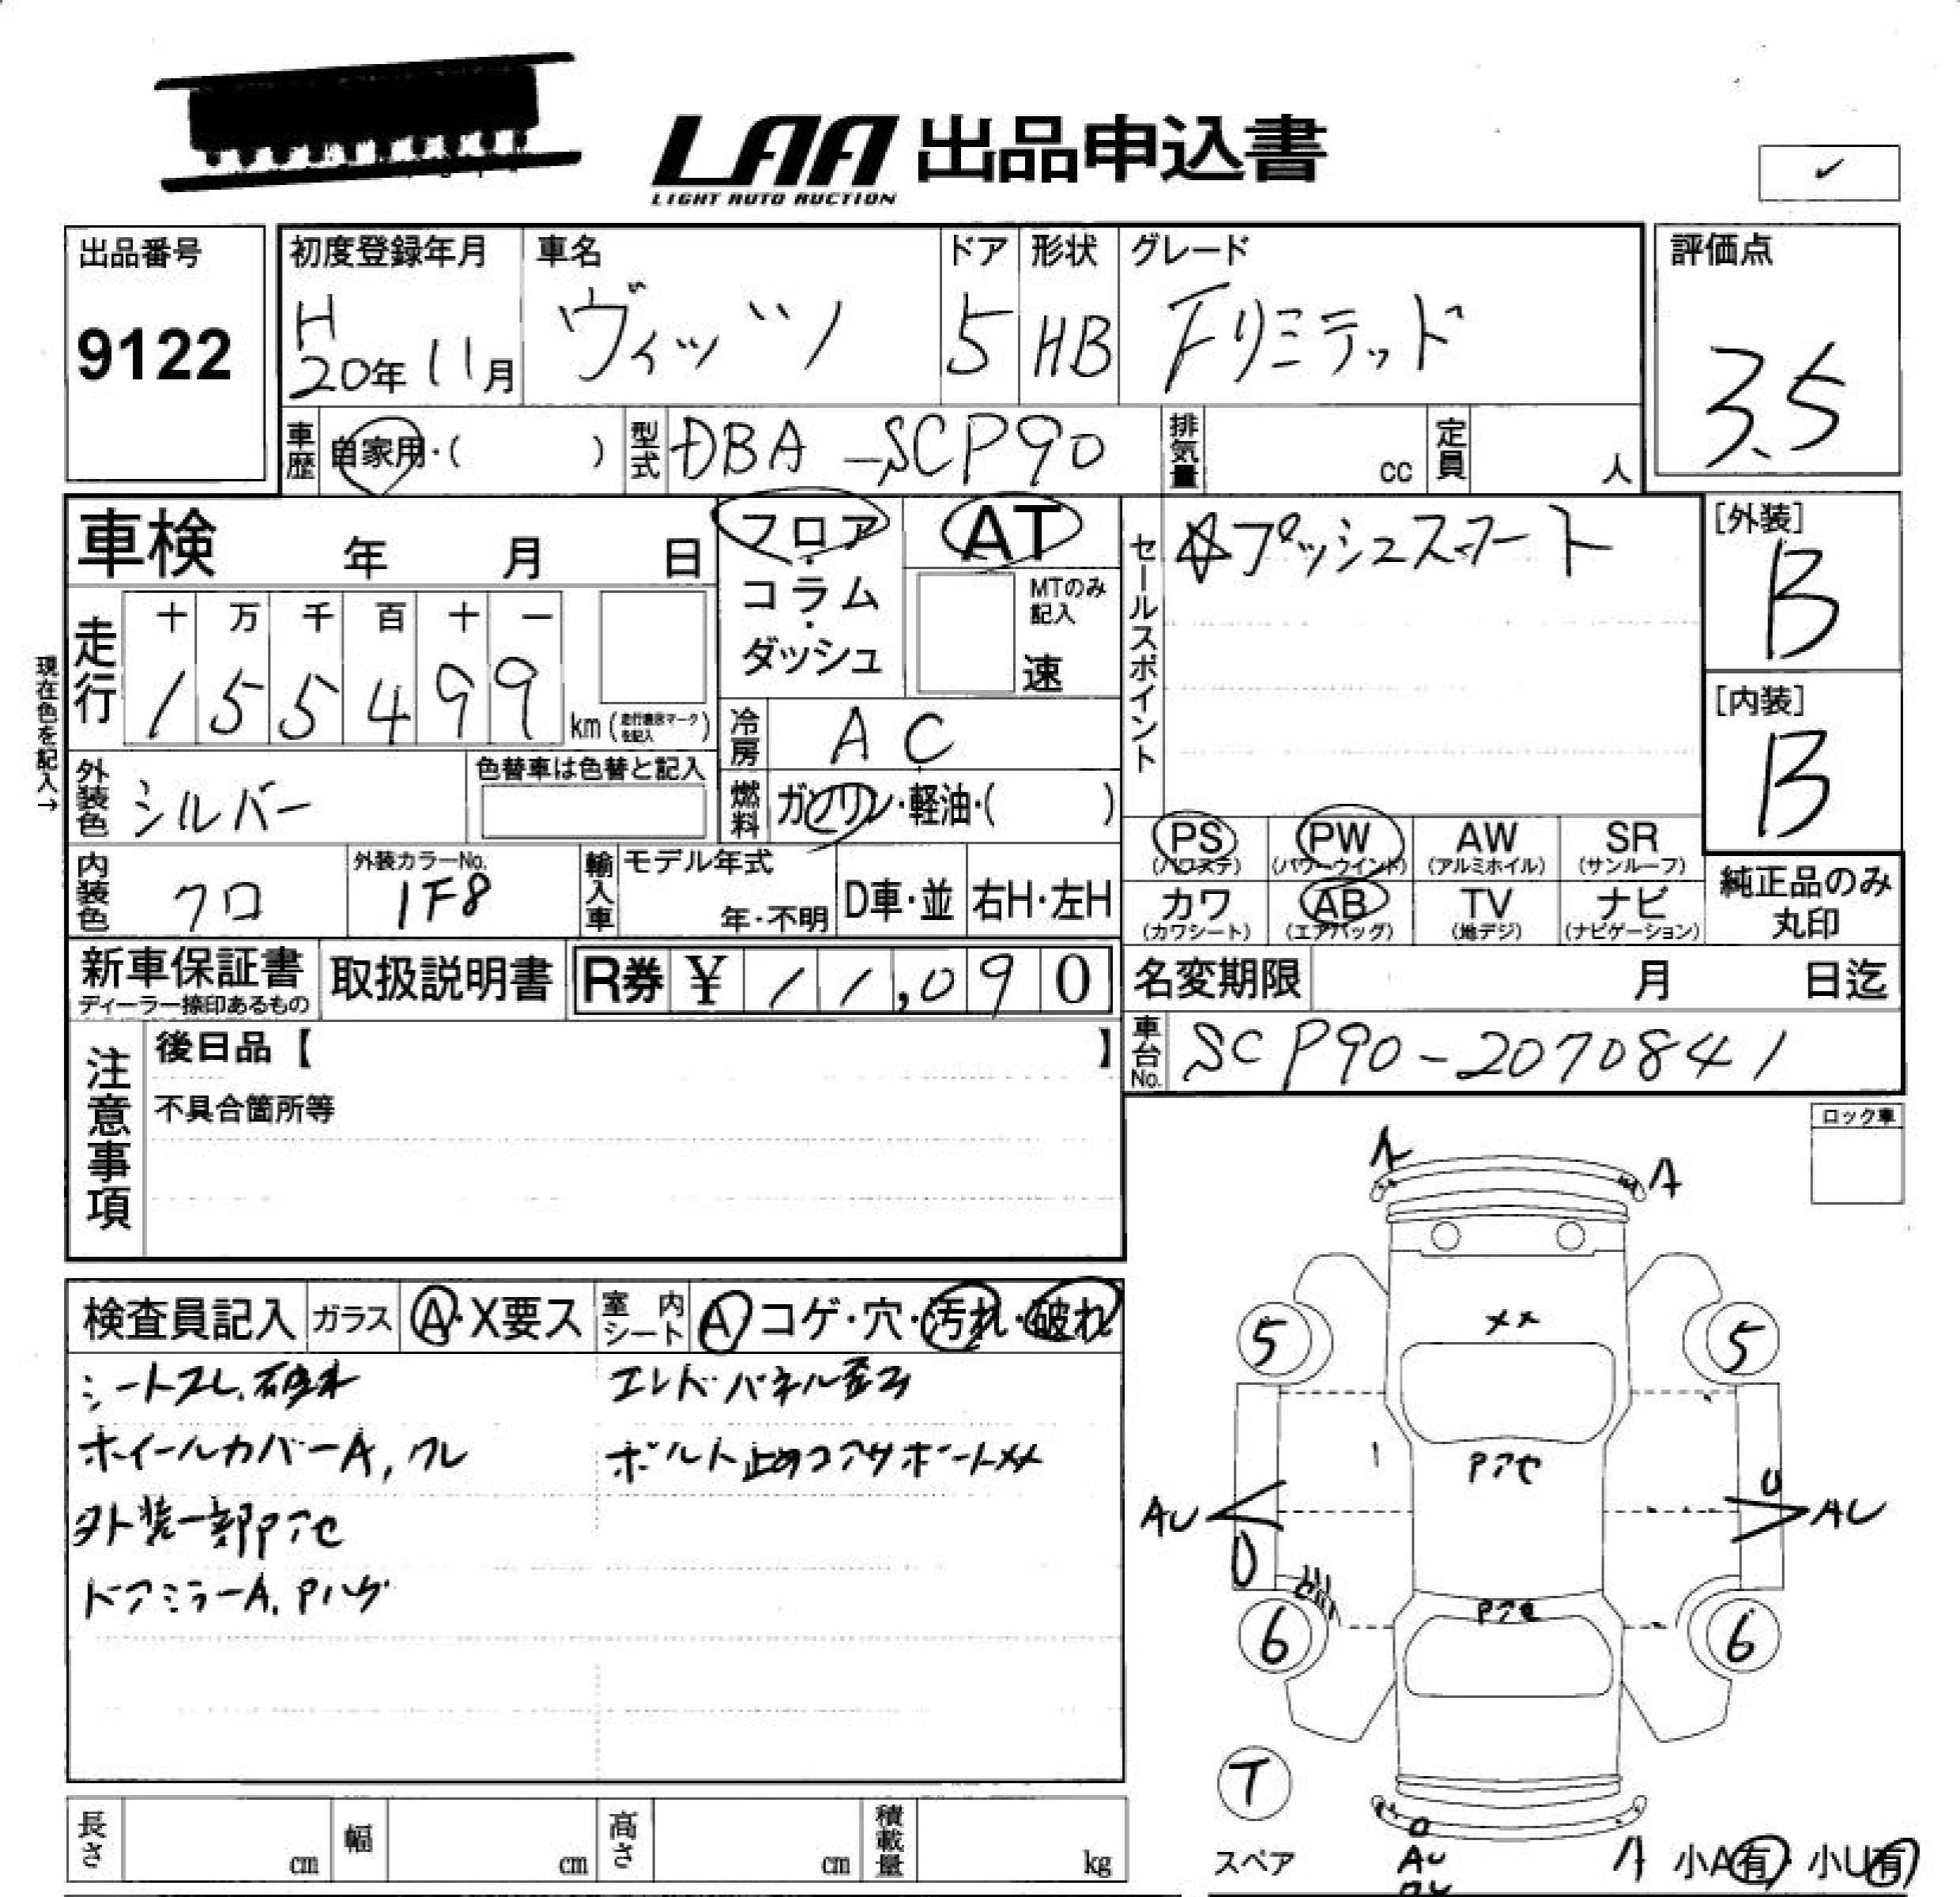 LAA 出品申込書
LIGHT AUTO AUCTION
✓
出品番号
9122
初度登録年月
H
20年 11月
車名
ヴィッツ
ドア
5
形状
HB
グレード
Fリミテッド
評価点
3.5
車歴 自家用・( )
型式 DBA-SCP90
排気量 cc
定員 人
車検 年 月 日
フロア・
コラム・
ダッシュ
AT
MTのみ
記入
速
セールスポイント
☆プッシュスタート
[外装]
B
[内装]
B
現在色を記入→
走行
十 万 千 百 十 一
1 5 5 4 9 9
km (走行表示マークを記入)
冷房 AC
外装色 シルバー
色替車は色替と記入
燃料 ガソリン・軽油・( )
PS (パワステ)
PW (パワーウインド)
AW (アルミホイル)
SR (サンルーフ)
カワ (カワシート)
AB (エアバッグ)
TV (地デジ)
ナビ (ナビゲーション)
純正品のみ
丸印
内装色 クロ
外装カラーNo.
1F8
輸入車
モデル年式
年・不明
D車・並
右H・左H
新車保証書
ディーラー捺印あるもの
取扱説明書
R券 ¥ 11,090
名変期限 月 日迄
車台No. SCP90-2070841
注意事項
後日品【 】
不具合箇所等
ロック車
検査員記入
ガラス A・X要ス
室内シート A コゲ・穴・汚れ・破れ
シートスレ,
エンドパネル歪み
ホイールカバーA, ワレ
ボルト止めコアサポートXX
外装一部Pアセ
ドアミラーA, Pハゲ
A
A
XX
5
5
Pアセ
U
AU
AU
U
Pアセ
6
6
T
スペア
AU
A
小A有・小U有
長さ cm
幅 cm
高さ cm
積載量 kg